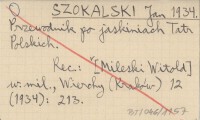 O SZOKALSKI Jan 1934.
Przewodnik po jaskiniach Tatr
Polskich.
Rec.: "[Mileski Witold]
w: mil., Wierchy (Kraków) 12
(1934): 213.